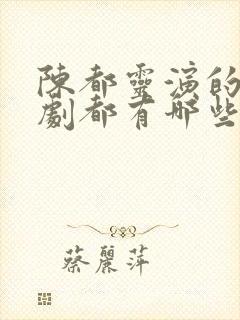 陳都靈演的
劇都有哪些
蔡麗萍